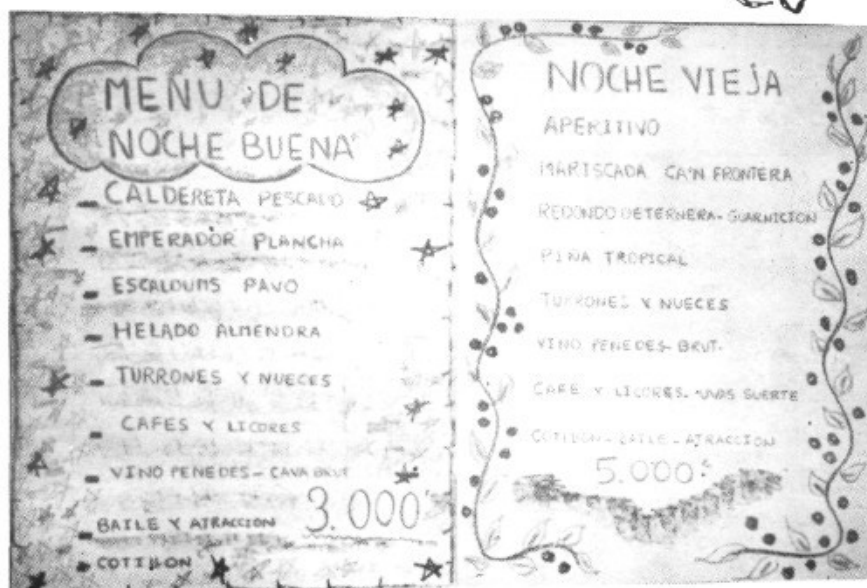 MENU DE
NOCHE BUENA
- CALDERETA PESCADO
- EMPERADOR PLANCHA
- ESCALOUMS PAVO
- HELADO ALMENDRA
- TURRONES Y NUECES
- CAFES Y LICORES
- VINO PENEDES - CAVA BRUT
- BAILE Y ATRACCION 3.000
- COTILLON
NOCHE VIEJA
APERITIVO
MARISCADA CA'N FRONTERA
REDONDO DE TERNERA - GUARNICION
PIÑA TROPICAL
TURRONES Y NUECES
VINO PENEDES - BRUT.
CAFE Y LICORES. UVAS SUERTE
COTILLON - BAILE - ATRACCION
5.000